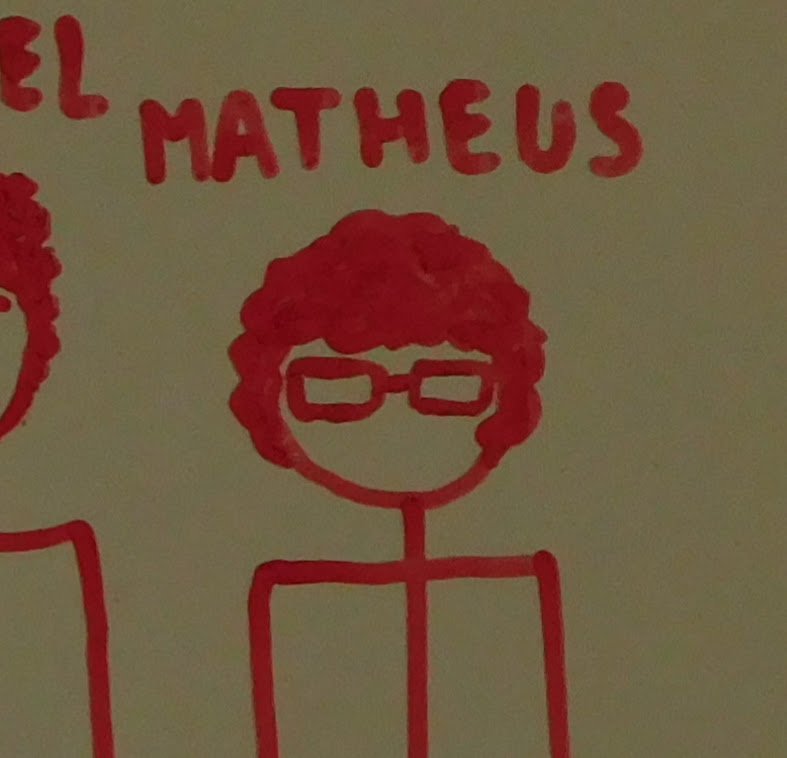 EL
MATHEUS